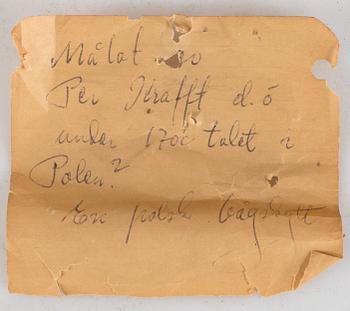 Målat av
Per Krafft d.ö
under 1700 talet i
Polen?
En polsk